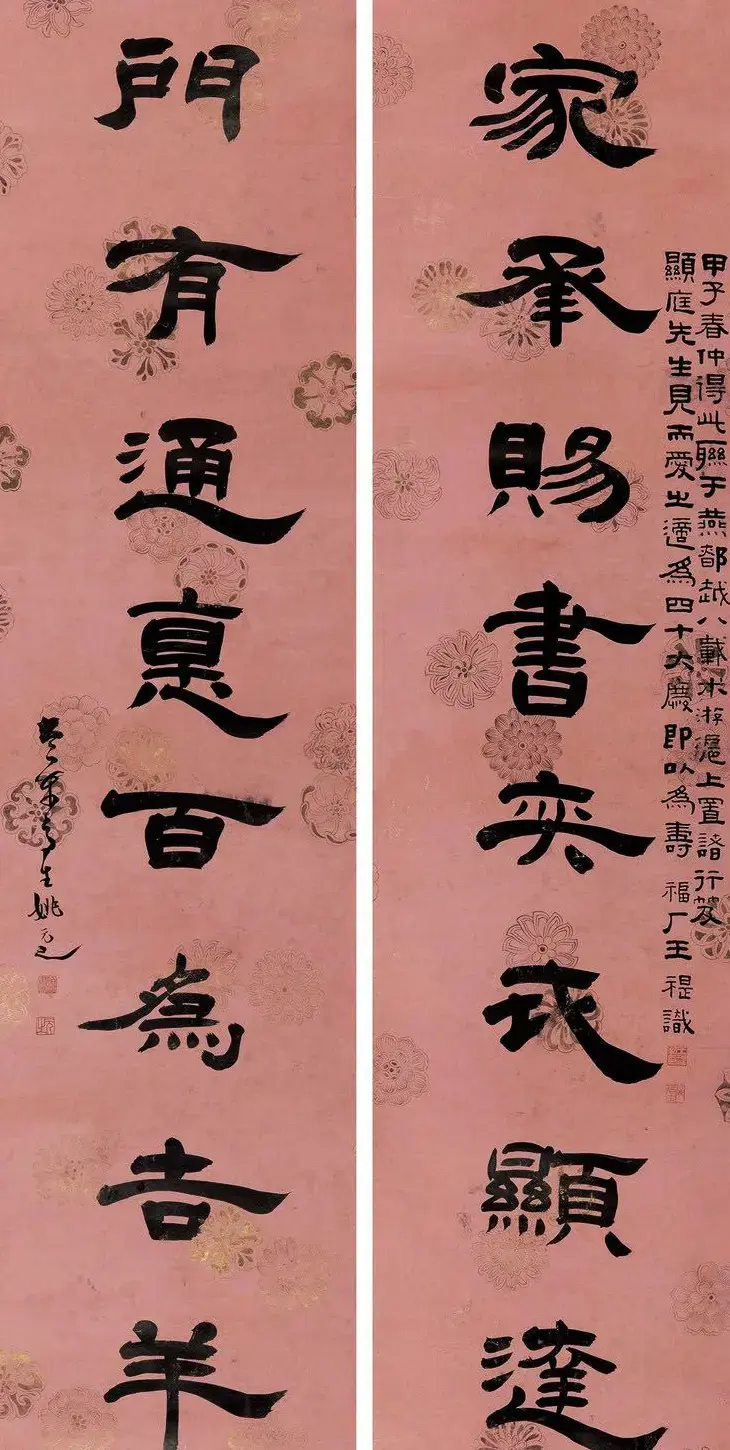 甲子春仲得此聯于燕都越八載來游滬上置諸行笈
顯庭先生見而愛之適為四十大慶即以為壽 福厂王禔識
家承賜書奕代顯達
門有通悳百為吉羊
竹葉亭生姚元之